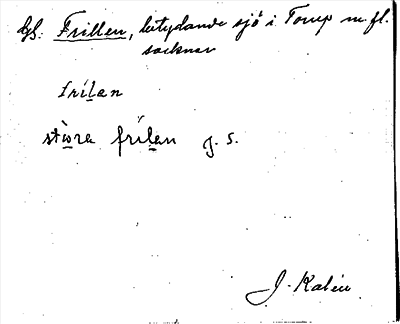 hgl. Frillen, betydande sjö i Torup m. fl.
socknar
frilan
stòra frílan g. s.
J. Kalén